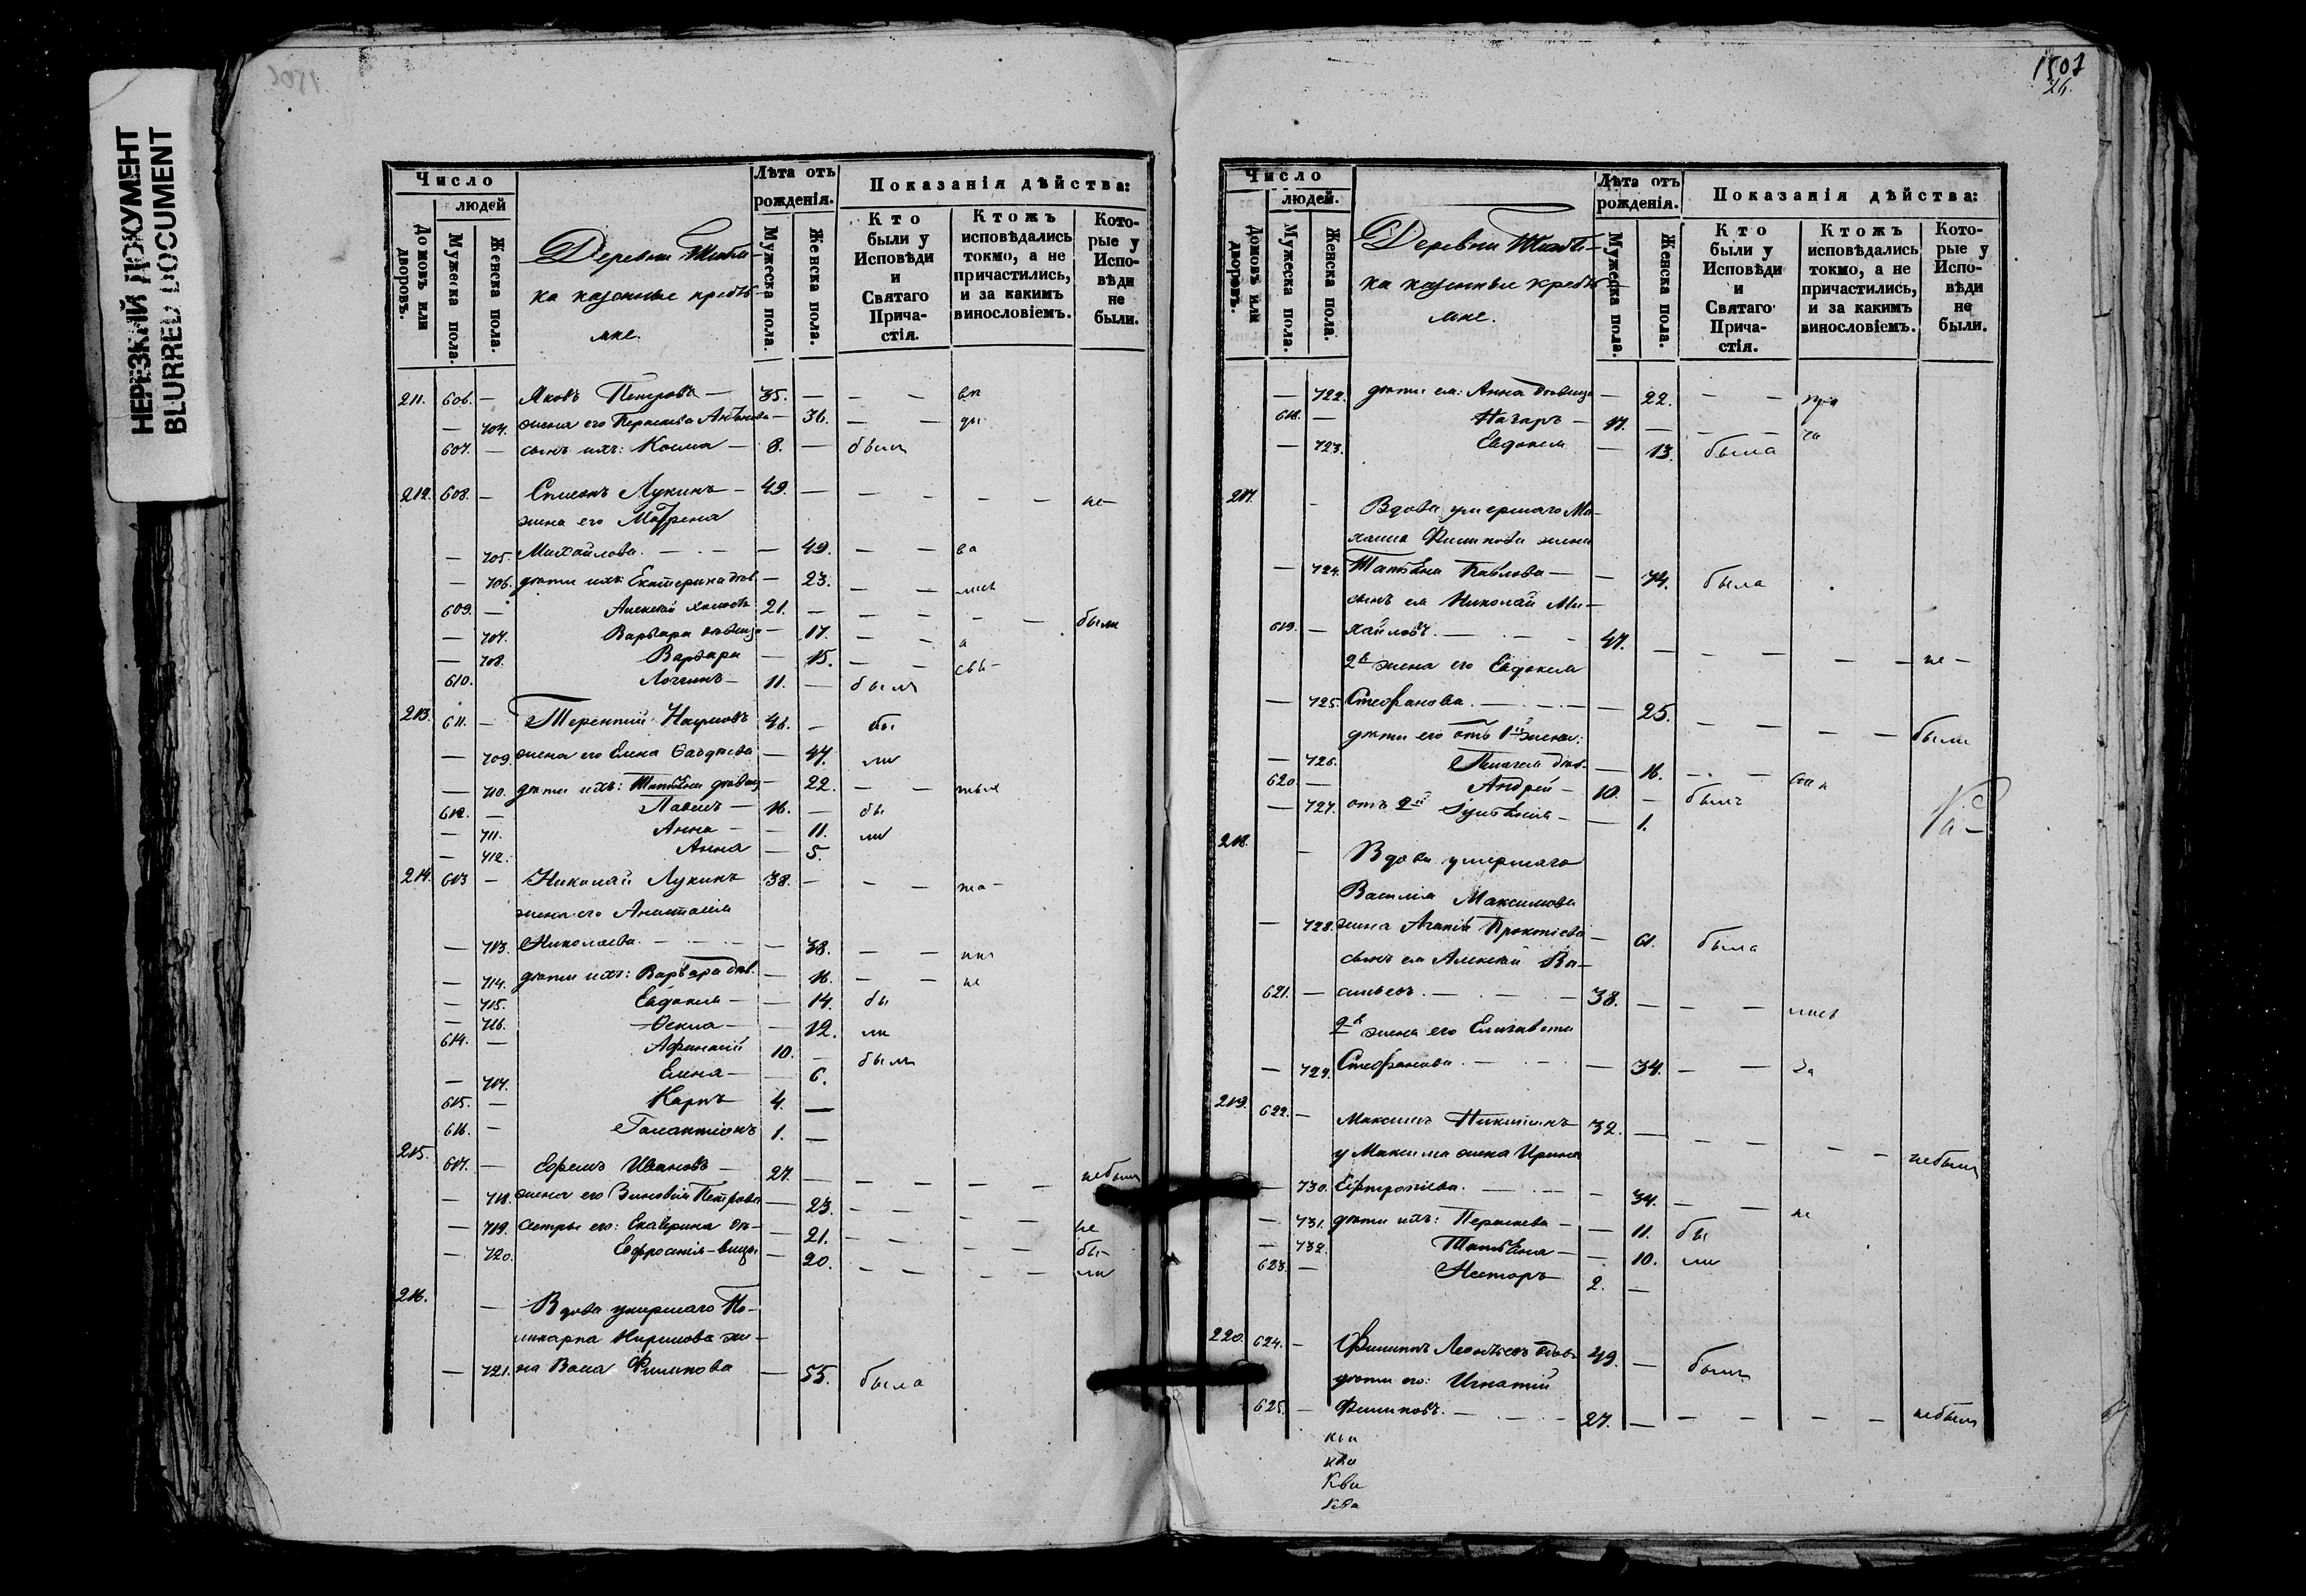 НЕРЕЗКИЙ ДОКУМЕНТ
BLURRED DOCUMENT
Число
людей
Домовъ или дворовъ.
Мужеска пола.
Женска пола.
Деревни
ка казенные кресть-
яне.
Лѣта отъ рожденія.
Мужеска пола.
Женска пола.
Показанія дѣйства:
Кто были у Исповѣди и Святаго Прича-стія.
Ктожъ исповѣдались токмо, а не причастились, и за какимъ винословіемъ.
Кото-рые у Испо-вѣди не были.
211. 606. — Яковъ Петровъ — 35. — — —
— 704. жена его Параскева — 36. — —
607. — сынъ ихъ: Косма — 8. — былъ
212. 608. — Симеонъ Лукинъ — 49. — — — — — не —
жена его Матрена
— 705. Михайлова. — — — 49. — —
— 706. дѣти ихъ: Екатерина дѣв. — 23. — —
609. — Алексѣй холостъ 21. — — — — — были
— 707. Варвара дѣвица — 17. — —
— 708. Варвара — 15. — —
610. Логгинъ — 11. — былъ
213. 611. — Терентій Наумовъ 46. — бы
— 709. жена его Елена Фаддѣева — 47. ли
— 710. дѣти ихъ: Татьяна дѣвица — 22. — —
612. — Павелъ — 16. — бы
— 711. Анна — — 11. ли
— 712. Анна — 5.
214. 613 — Николай Лукинъ 38. — — —
жена его Анастасія
— 713. Николаева. — — — 38. — —
— 714. дѣти ихъ: Варвара дѣв. — 16. — —
— 715. Евдокія — — 14. бы
— 716. Ѳекла — — 12. ли
614. — Афанасій 10. — былъ
— 717. Елена — — 6.
615. — Карпъ 4. —
616. — Галактіонъ 1. —
215. 617. — Ефремъ Ивановъ — 27. — — — — — небылъ
— 718. жена его Зиновія Петрова — 23. — — — —
— 719. сестры его: Екатерина дѣ- — 21. — — — — не
— 720. Евфросинія — вицы — 20. — — — — бы-
ли
216. — Вдова умершаго По-
ликарпа Кирилова же-
— 721. на Васса Филипова — 55. была
1507
26.
Число
людей.
Домовъ или дворовъ.
Мужеска пола.
Женска пола.
Деревни
ка казенные кресть-
яне.
Лѣта отъ рожденія.
Мужеска пола.
Женска пола.
Показанія дѣйства:
Кто были у Исповѣди и Святаго Прича-стія.
Ктожъ исповѣдались токмо, а не причастились, и за какимъ винословіемъ.
Кото-рые у Испо-вѣди не были.
— 722. дѣти ея: Анна дѣвица — 22. — —
618. — Назаръ — 17. — — —
— 723. Евдокія — 13. была
217. — Вдова умершаго Ми-
хаила Филипова жена
— 724. Татьяна Павлова — — 74. была
сынъ ея Николай Ми-
619. — хайловъ. — — — 47. — — — — — не —
2я жена его Евдокія
— 725. Стефанова. — — — — 25. — — — — были
дѣти его отъ 1й жены:
— 726. Пелагея дѣв. — 16. — —
620. — Андрей — 10. — былъ
— 727. отъ 2й — — 1.
218. — Вдова умершаго
Василія Максимова
— 728. жена Агапія Прокопіева — 61. была
сынъ ея Алексѣй Ва-
621. — сильевъ. — — — 38. — — —
2я жена его Елизавета
— 729. Стефанова. — — — — 34. — —
219. 622. — Максимъ Никитинъ 32. — — — — — небылъ
у Максима жена Ирина
— 730. Евтропіева. — — — — 34. — — не
— 731. дѣти ихъ: Параскева — — 11. бы
— 732. Татьяна — — 10. ли
623. — Несторъ 2. —
220. 624. — Филиппъ Леонтьевъ вдовъ 49. — былъ
дѣти его: Игнатій
625. — Филиповъ. — — — 27. — — — — — небылъ
Кви